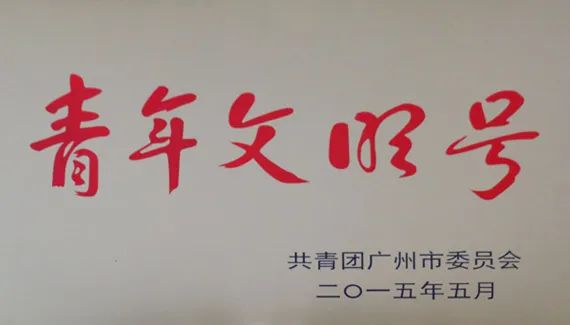 青年文明号
共青团广州市委员会
二〇一五年五月